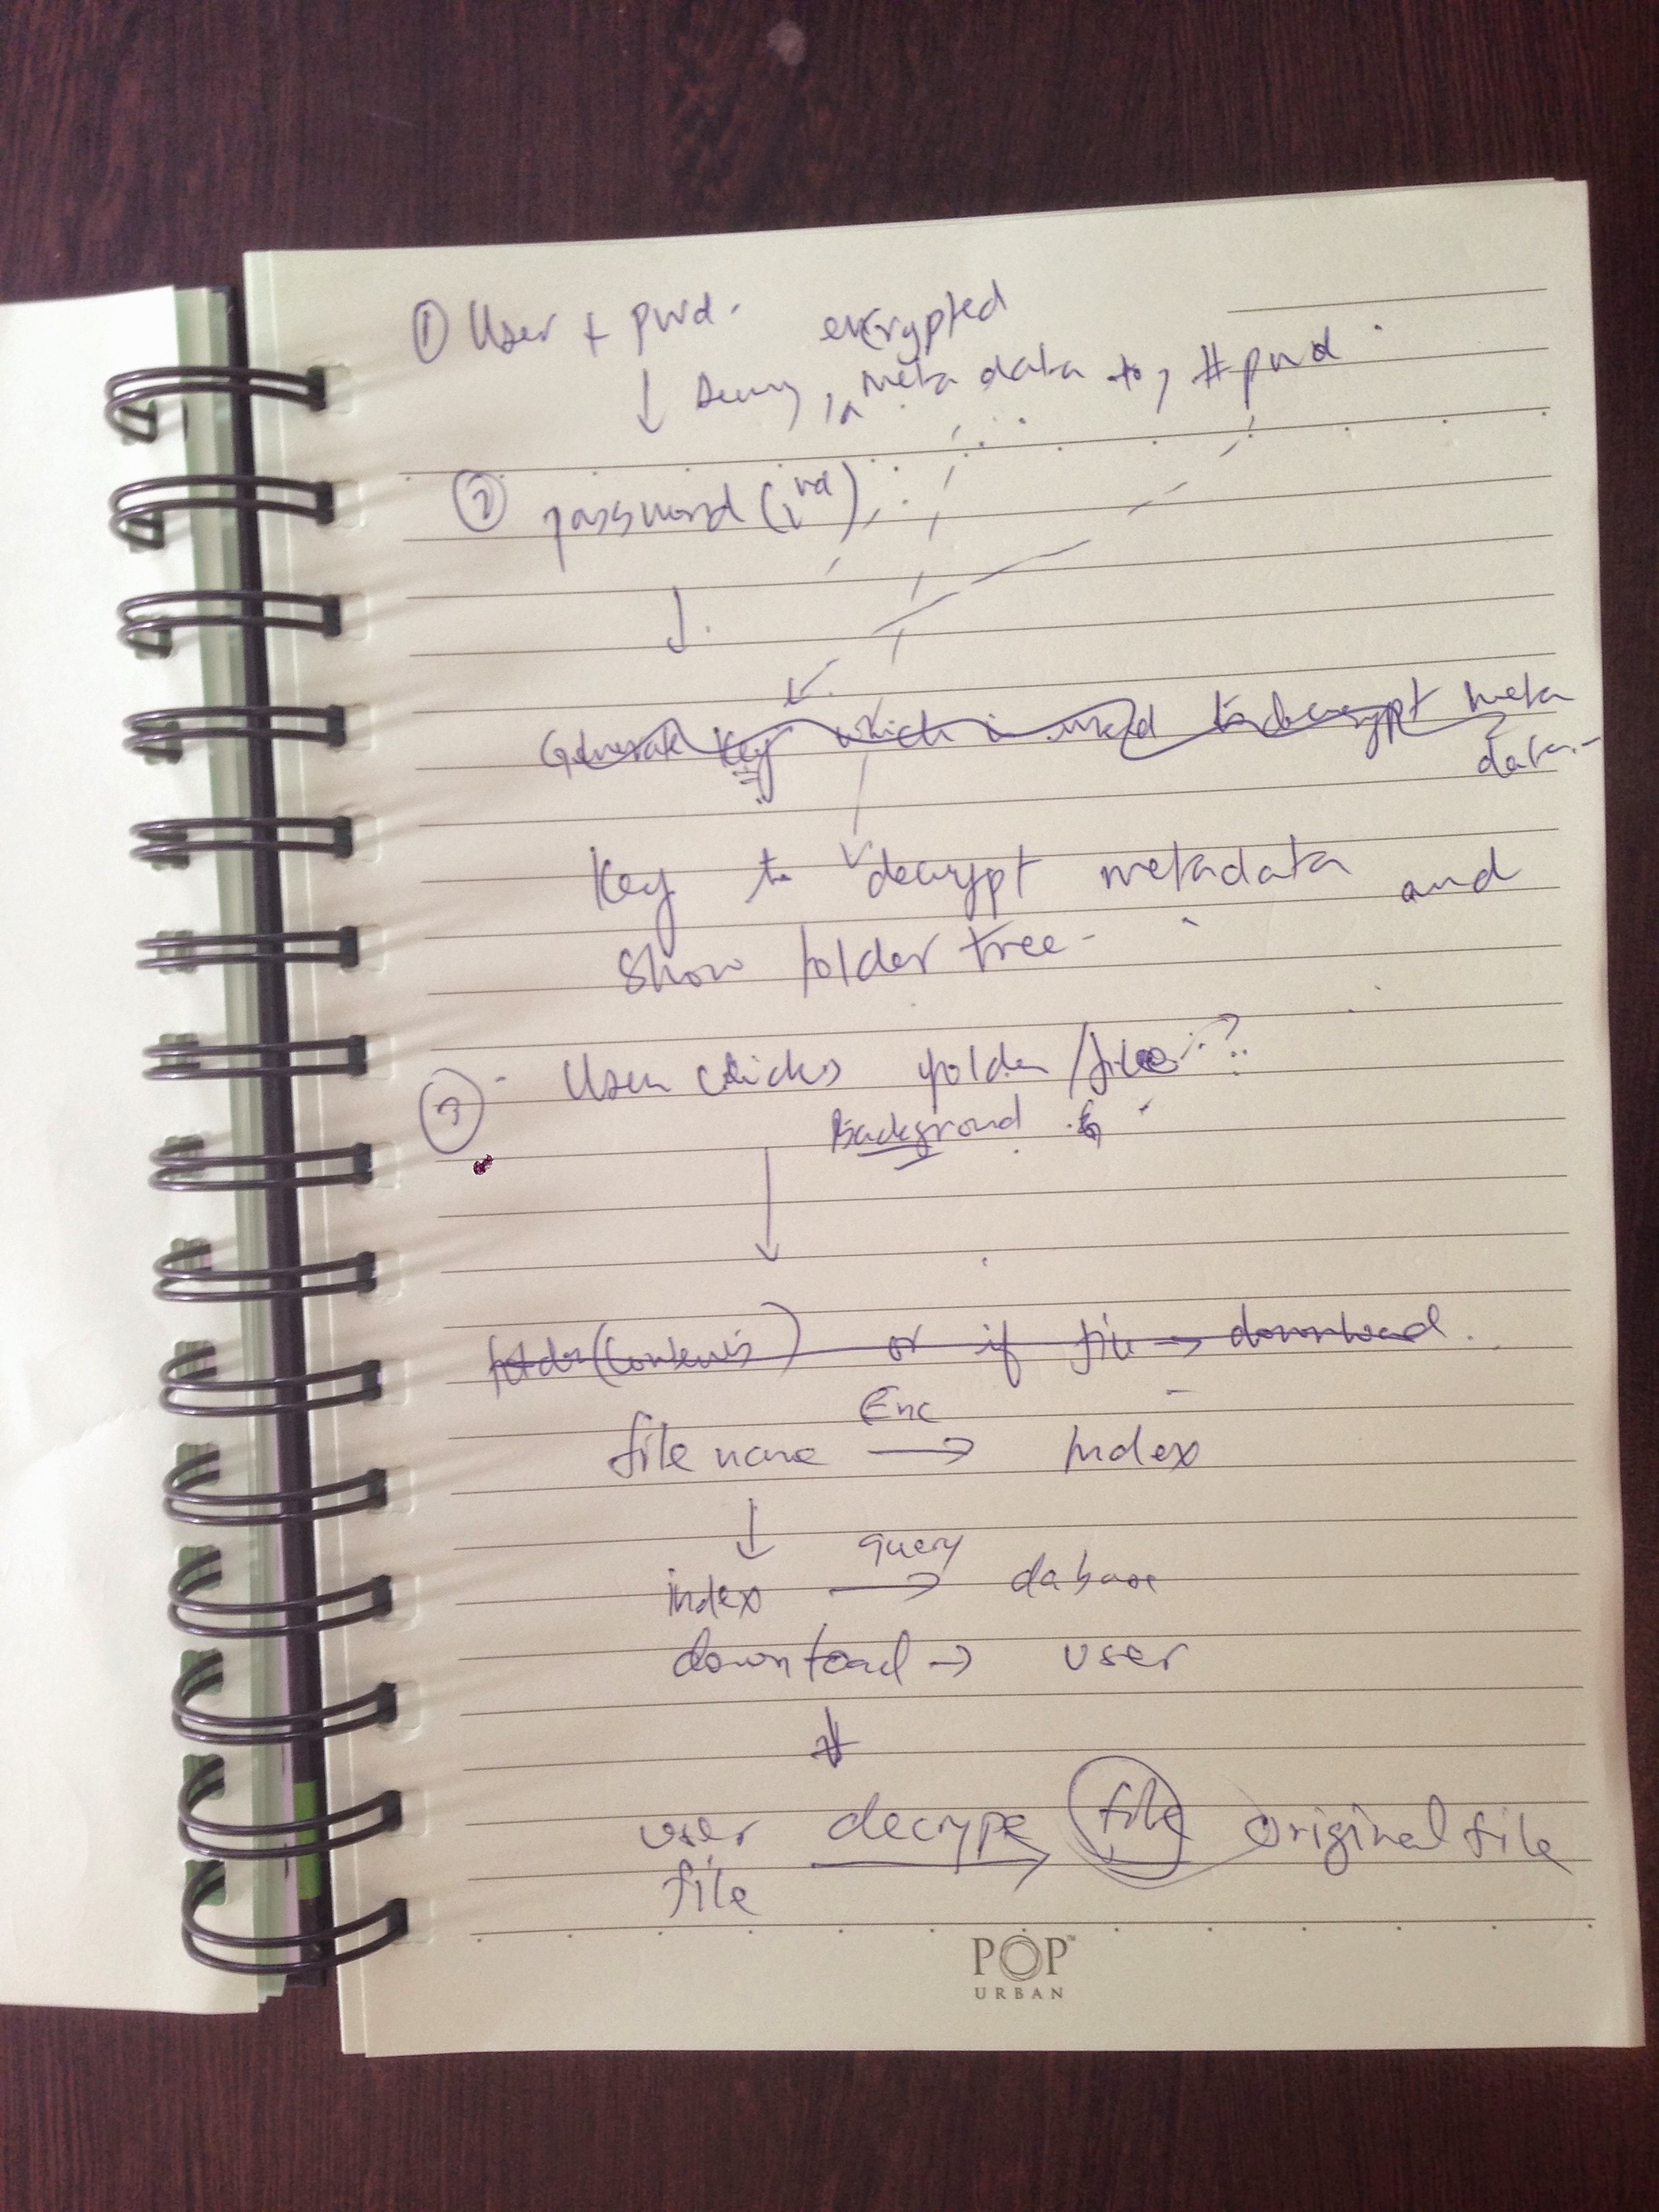 ① User + pwd.
encrypted
↓ meta data to, # pwd.
② password
↓
Generate key which is used to decrypt meta
data.
Key to decrypt metadata and
show folder tree
③ - User clicks folder / file ?
Background
↓
folder (contents) or if file → download.
Enc
file name → Index
↓ query
index → dabase
download → user
↓
user decrype file original file
file
POP™
URBAN